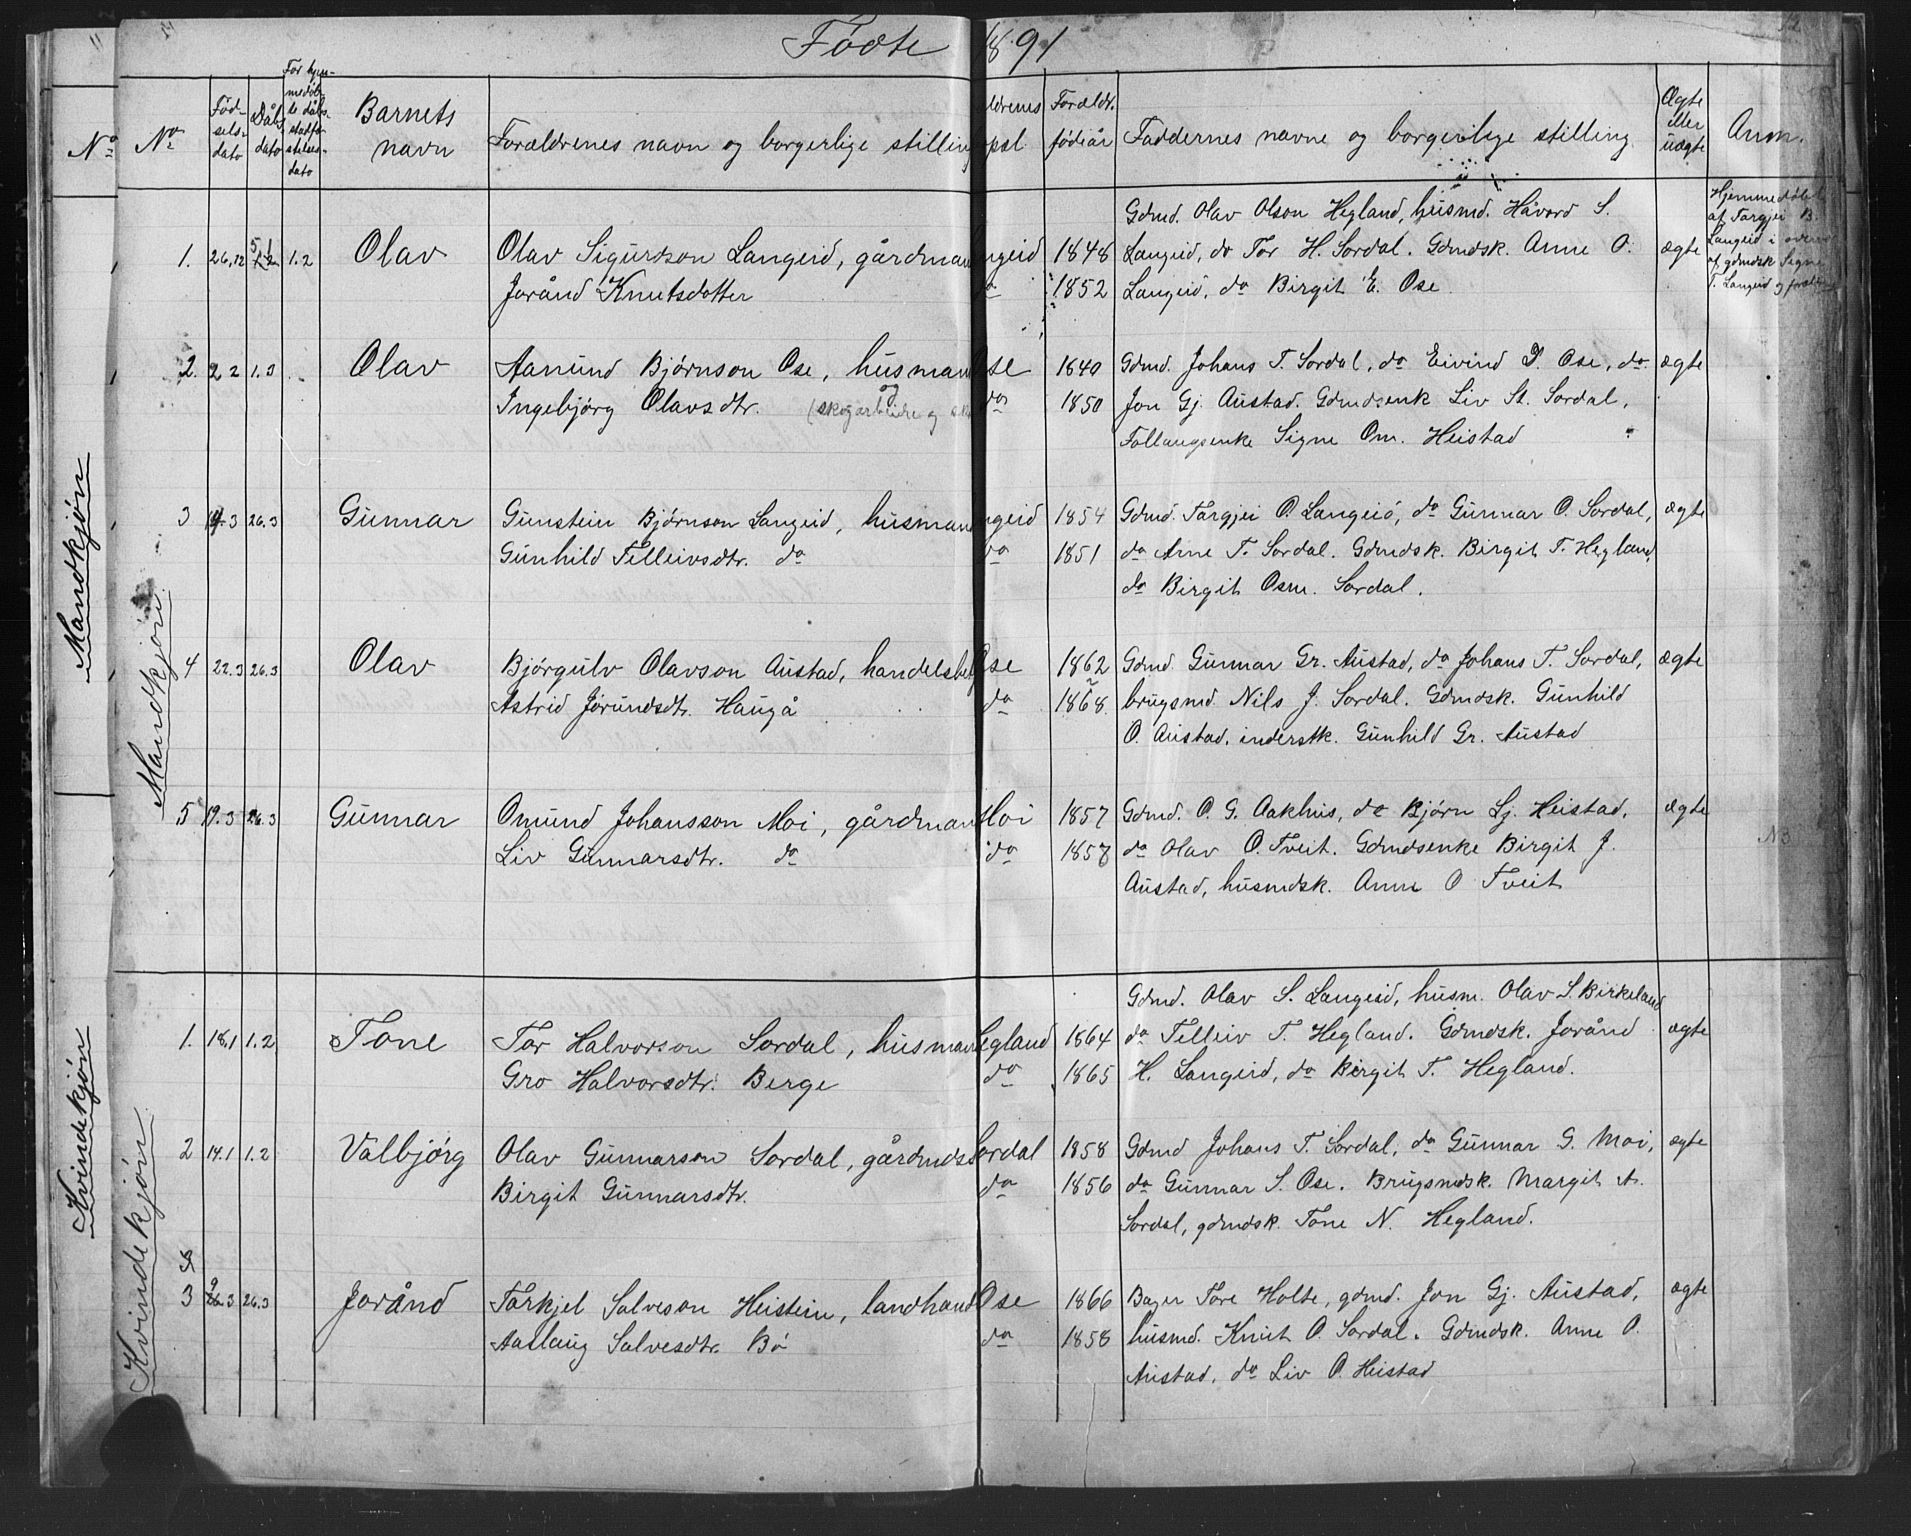 Fødte 1891
No
No
Fødselsdato
Dåbsdato
For hjemmedøbte dåbs stadfæstelsesdato
Barnets navn
Forældrenes navn og borgerlige stilling
ldrenes opsl
Forældr. fødeår
Faddernes navne og borgerlige stilling
Ægte eller uægte
Anm.
Mandkjøn
Mandkjøn
1. 26.12 5/1 1.2 Olav Olav Sigurdson Langeid, gårdman ngeid 1848
Jorånd Knutsdotter do 1852
Gdmd. Olav Olson Hegland, husmd. Håvord S.
Langeid, do Tor H. Sordal. Gdmdsk. Anne O.
Langeid, do Birgit E. Ose
ægte
Hjemmedøbt
af Targjei B.
Langeid i overv
af gdmdsk Signe
T. Langeid og foræld
2. 2.2 1.3 Olav Aanund Bjørnson Ose, husman Ose 1840
Ingebjørg Olavsdtr. (skogarbeidre og do 1850
Gdmd. Johans T. Sordal, do Eivind D. Ose, do
Jon Gj. Austad. Gdmdsenk Liv St. Sordal,
Follaugsenke Signe Om. Heistad
ægte
3 14.3 26.3 Gunnar Gunstein Bjørnson Langeid, husman ngeid 1854
Gunhild Telleivsdtr. do do 1851
Gdmd. Targjei O. Langeid, do Gunnar O. Sordal,
do Arne T. Sordal. Gdmdsk. Birgit T. Hegland,
do Birgit Osm. Sordal.
ægte
4 22.3 26.3 Olav Bjørgulv Olavson Austad, handelsbet Ose 1862
Astrid Jørundsdtr. Haugå do 1868
Gdmd. Gunnar Gr. Austad, do Johans T. Sordal,
brugsmd. Nils J. Sordal. Gdmdsk. Gunhild
O. Austad, inderstk. Gunhild Gr. Austad
ægte
5 19.3 26.3 Gunnar Omund Johansson Moi, gårdman Moi 1857
Liv Gunnarsdtr. do do 1857
Gdmd. O. G. Aakhus, do Bjørn Lj. Heistad,
do Olav O. Tveit. Gdmdsenke Birgit J.
Austad, husmdsk. Anne O Tveit
ægte
N3
Kvindekjøn
Kvindekjøn
1. 18.1 1.2 Tone Tor Halvorson Sordal, husman Hegland 1864
Gro Halvorsdtr. Berge do 1865
Gdmd. Olav S. Langeid, husm. Olav S. Birkeland
do Telleiv T. Hegland. Gdmdsk. Jorånd
H. Langeid, do Birgit T. Hegland.
ægte
2 14.1 1.2 Valbjørg Olav Gunnarson Sordal, gårdmds Sordal 1858
Birgit Gunnarsdtr. do 1856
Gdmd Johans T. Sordal, do Gunnar G. Moi,
do Gunnar S. Ose. Brugsmdsk. Margit A.
Sordal, gdmdsk. Tone N. Hegland.
ægte
3 26.3 Jorånd Torkjel Salveson Heistein, landhand Ose 1866
Aaslaug Salvesdtr. Bø do 1858
Bager Tore Holte, gdmd. Jon Gj. Austad,
husmd. Knut O. Sordal. Gdmdsk. Anne O.
Austad, do Liv O. Heistad
ægte